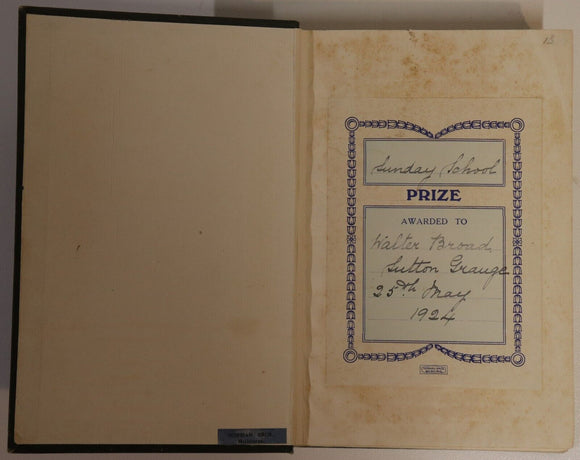 13
Sunday School
PRIZE
AWARDED TO
Walter Broad
Sutton Grange
25th May
1924
NORMAN BROS.